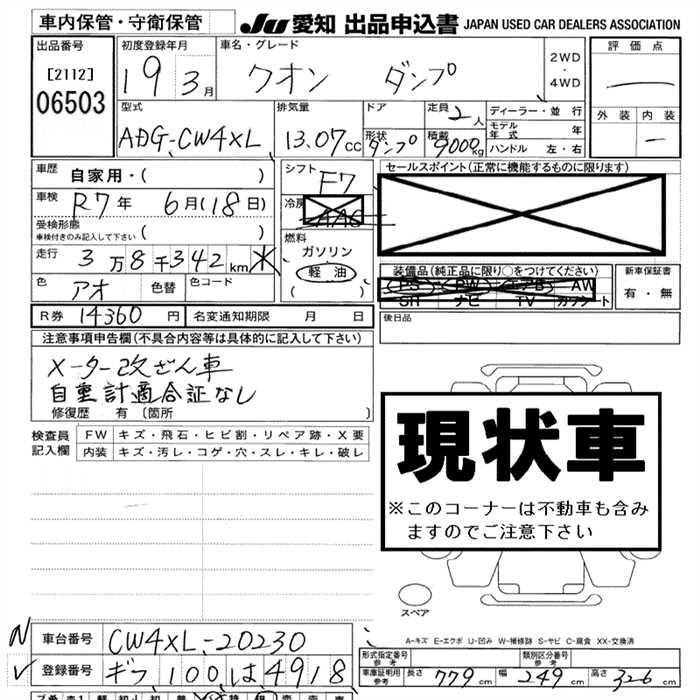 車内保管・守衛保管
JU 愛知 出品申込書 JAPAN USED CAR DEALERS ASSOCIATION
出品番号 初度登録年月 車名・グレード 評価点
[2112] 19 3月 クオン ダンプ 2WD・4WD
06503
型式 排気量 ドア 定員 2人 ディーラー・並行 外装 内装
ADG-CW4XL 13.07cc 形状 ダンプ 積載 9000kg モデル年式 年 ー
ハンドル 左・右
車歴 自家用・( ) シフト F7 セールスポイント(正常に機能するものに限ります)
車検 R7年 6月(18日) 冷房 AAC
受検形態
車検付きのみ記入して下さい ( ) 燃料
走行 3万8千342km * ガソリン
軽油 装備品(純品品に限り○をつけてください) 新車保証書
色 アオ 色替 色コード ( ) PS PW エアB AW 有・無
SR ナビ TV カワシート
R券 14360円 名変通知期限 月 日 後日品
注意事項申告欄(不具合内容等は具体的に記入して下さい)
メーター改ざん車
自重計適合証なし
修復歴 有 〔箇所 〕
検査員 FW キズ・飛石・ヒビ割・リペア跡・X要
記入欄 内装 キズ・汚レ・コゲ・穴・スレ・キレ・破レ
現状車
※このコーナーは不動車も含み
ますのでご注意下さい
スペア
A-キズ E-エクボ U-凹み W-補修跡 S-サビ C-腐食 XX-交換済
N 車台番号 CW4XL-20230 形式指定番号 参考 類別区分番号 参考
✓ 登録番号 ギフ 100 は 4918 車庫証明用 参考 長さ 779cm 幅 249cm 高さ 326cm